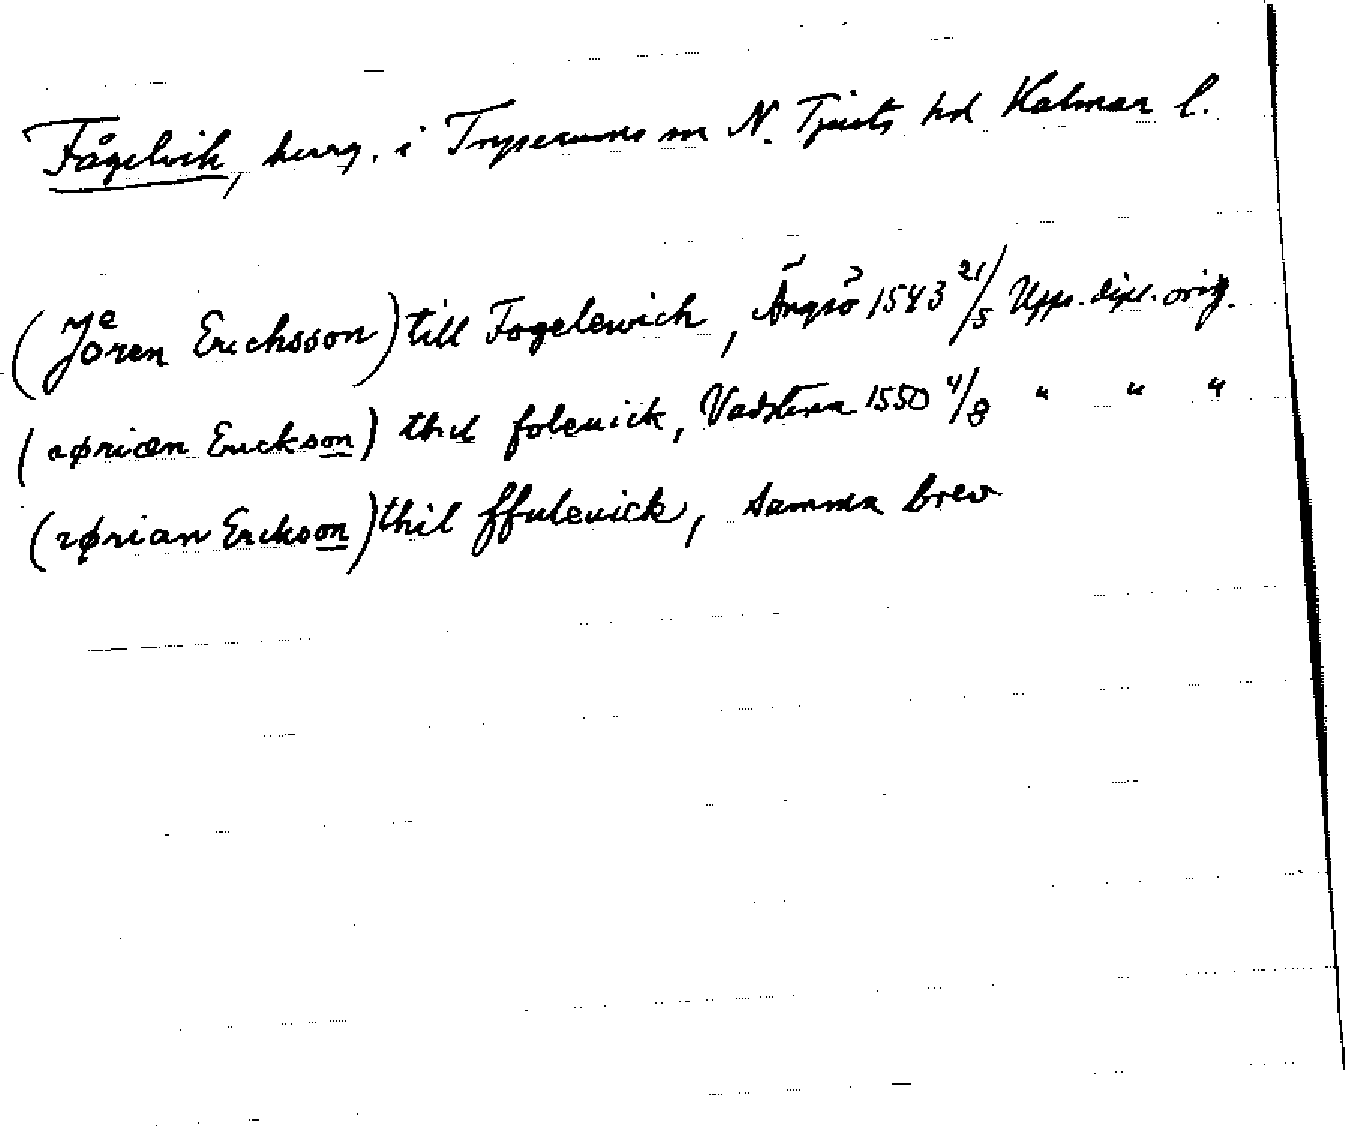 Fågelvik, herrg. i Tryserums sn N. Tjusts hd Kalmar l.
(Jören Erichsson) till Fogelewich, Ängsö 1543 21/5 Upps. dipl. orig.
(Iørian Erickson) thil folevick, Vadstena 1550 4/8 " " "
(Iørian Erickson) thil ffulevick, samma brev